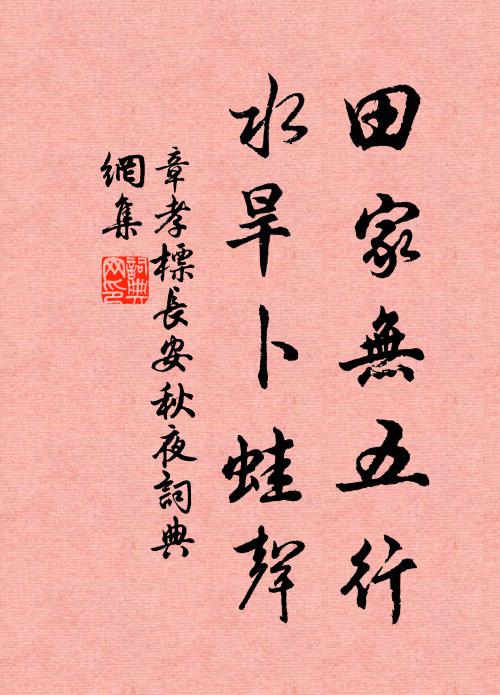 田家無五行
水旱卜蛙聲
章孝標長安秋夜詞典
網集
詞典
网印